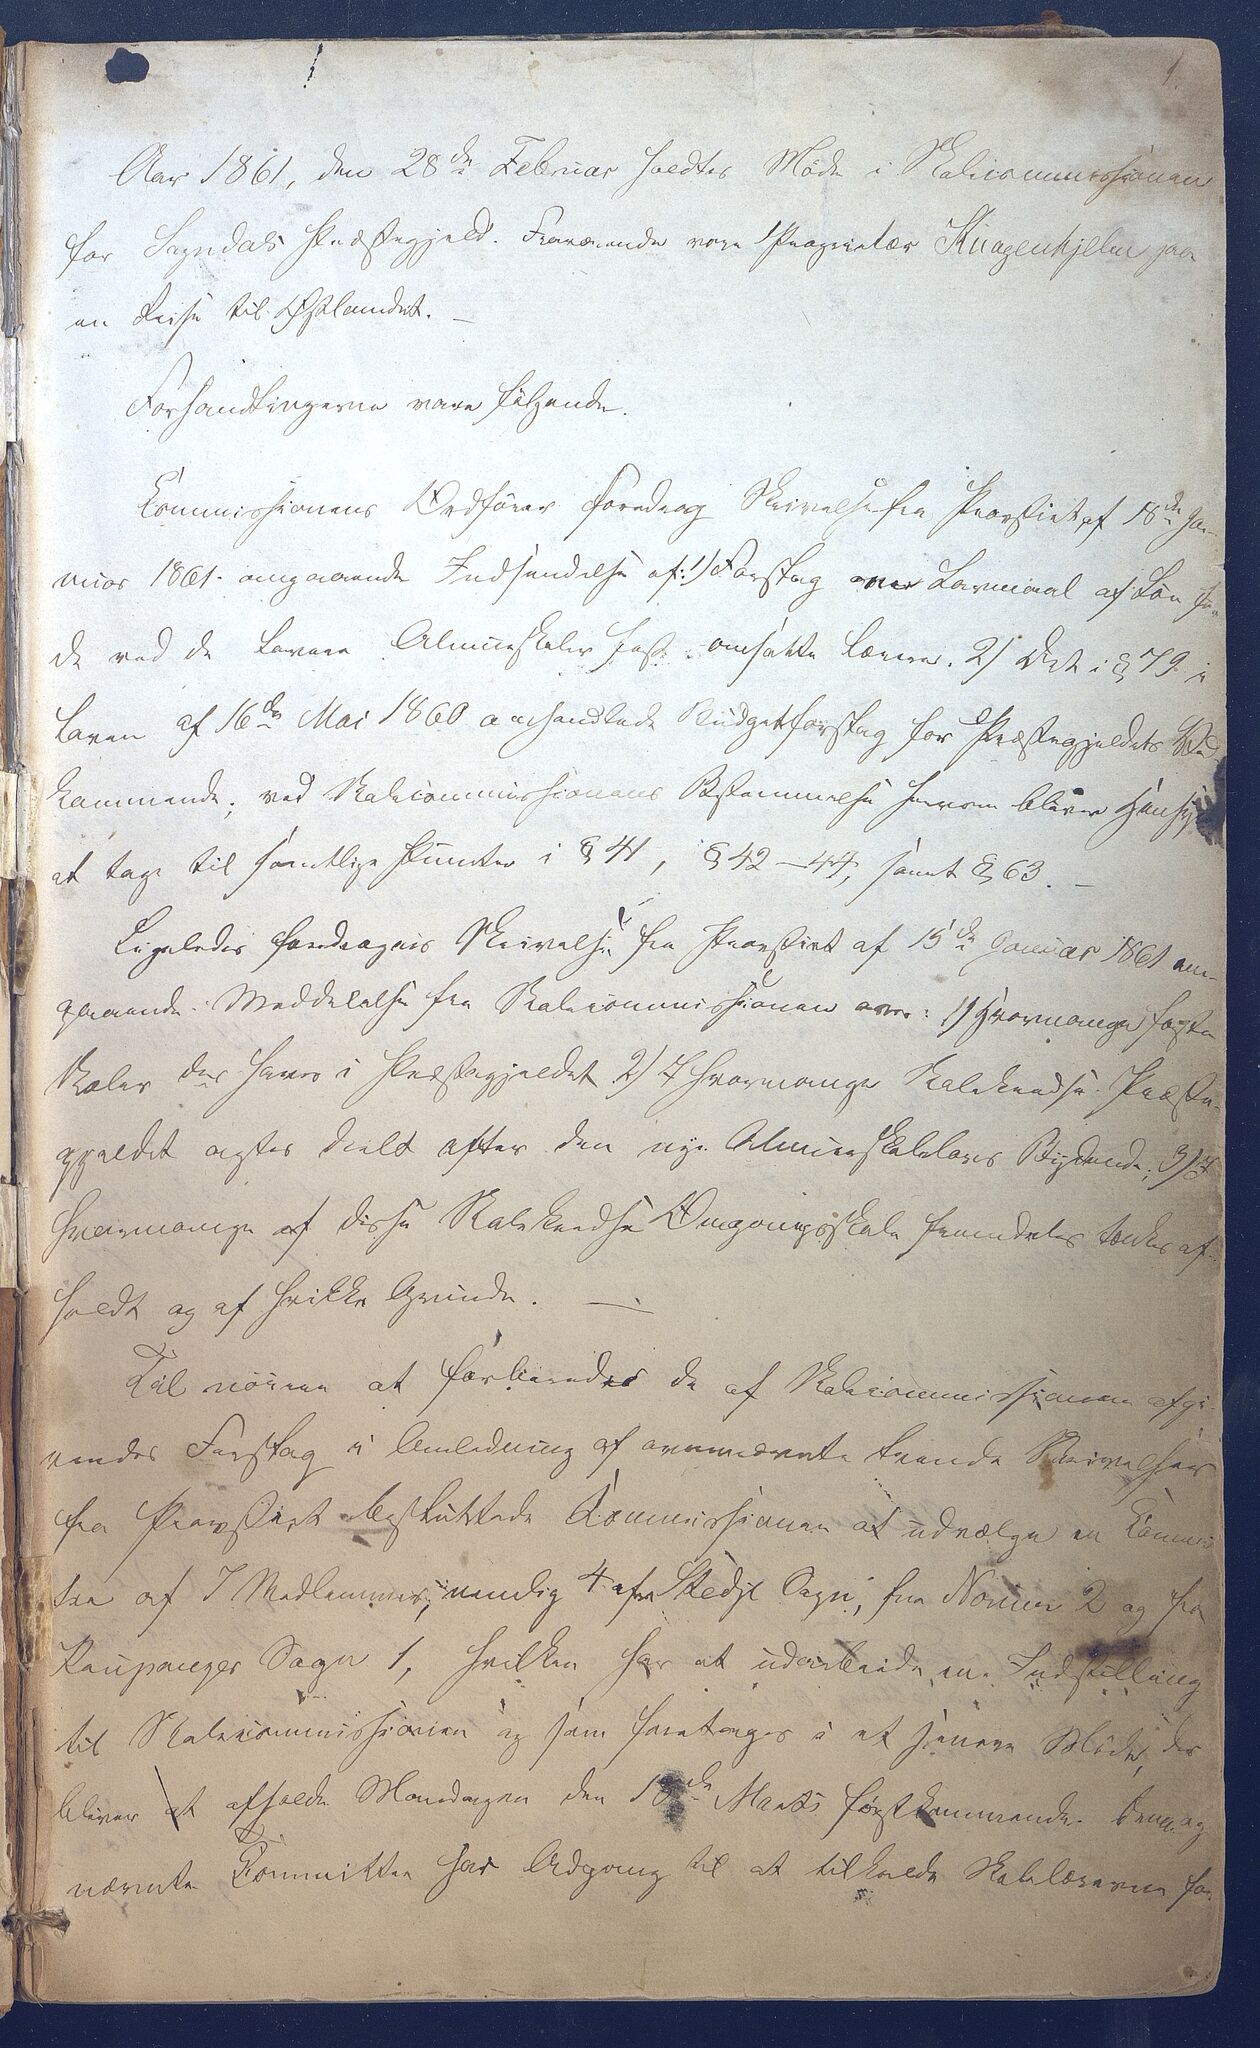 1.
Aar 1861, den 28de Februar holdtes Møde i Skolecommissionen
for Sogndals Præstegjeld. Fraværende vare Proprietær Knagenhjelm paa
en Reise til Østlandet. —
Forhandlingerne vare følgende.
Commissionens Ordfører foredrog Skrivelse fra Provstiet af 18de Ja-
nuar 1861 angaaende Indsendelse af: 1) Forslag over Lavmaal af Løn for
de ved de lavere Almueskoler fast ansatte Lærere. 2) Det i § 79 i
Loven af 16de Mai 1860 omhandlede Budgetforslag for Præstegjeldets Ved-
kommende; ved Skolecommissionens Bestemmelse herom bliver Hensyn
at tage til samtlige Punkter i § 41, § 42—44, samt § 63. —
Ligeledes foredroges Skrivelse fra Provstiet af 15de Januar 1861 an-
gaaende Meddelelse fra Skolecommissionen over: 1) Hvormange faste
Skoler der haves i Præstegjeldet 2) I hvormange Skolekredse Præste-
gjeldet agtes deelt efter den nye Almueskolelovs Bydende; 3) I
hvormange af disse Skolekredse Omgangsskole fremdeles tænkes af-
holdt og af hvilke Grunde. —
Til nøiere at forberede de af Skolecommissionen afgi-
vendes Forslag i Anledning af ovennævnte tvende Skrivelser
fra Provstiet besluttede Commissionen at udvælge en Commit-
tee af 7 Medlemmer, nemlig 4 af Stedje Sogn, fra Norum 2 og fra
Kaupanger Sogn 1, hvilken har at udarbeide en Indstilling
til Skolecommissionen og som foretages i et senere Møde, der
bliver at afholde Mandagen den 18de Marts førstkommende.
nævnte Committee har Adgang til at tilkalde Skolelærerne for